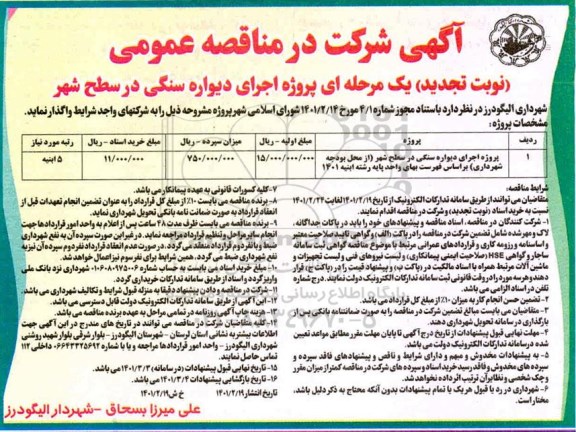 آگهی شرکت در مناقصه عمومی
(نوبت تجدید) یک مرحله ای پروژه اجرای دیواره سنگی در سطح شهر
شهرداری الیگودرز در نظر دارد باستناد مجوز شماره ۴/۱ مورخ ۱۴۰۱/۲/۱۴ شورای اسلامی شهر پروژه مشروحه ذیل را به شرکتهای واجد شرایط واگذار نماید.
مشخصات پروژه:
ردیف پروژه مبلغ اولیه - ریال میزان سپرده - ریال مبلغ خرید اسناد - ریال رتبه مورد نیاز
۱ پروژه اجرای دیواره سنگی در سطح شهر (از محل بودجه شهرداری) براساس فهرست بهای واحد پایه رشته ابنیه ۱۴۰۱ ۱۵/۰۰۰/۰۰۰/۰۰۰ ۷۵۰/۰۰۰/۰۰۰ ۱۱/۰۰۰/۰۰۰ ۵ ابنیه
شرایط مناقصه:
متقاضیان می توانند از طریق سامانه تدارکات الکترونیک از تاریخ ۱۴۰۱/۲/۱۹ لغایت ۱۴۰۱/۲/۲۴
نسبت به خرید اسناد (نوبت تجدید) و شرکت در مناقصه اقدام نمایند.
۱- شرکت کنندگان در مناقصه، اسناد مناقصه و پیشنهادهای خود را باید در پاکات جداگانه،
لاک و مهر شده شامل تضمین شرکت در مناقصه را در پاکت (الف) و گواهی تایید صلاحیت معتبر
و اساسنامه و رزومه کاری و قراردادهای عمرانی مرتبط با موضوع مناقصه گواهی ثبت سامانه
ساجار و گواهی HSE (صلاحیت ایمنی پیمانکاری) و لیست نیروهای فنی و لیست تجهیزات و
ماشین آلات مرتبط همراه با اسناد مالکیت در (پاکت ب) و پیشنهاد قیمت را در (پاکت ج) قرار
دهند
تلفن در اسناد الزامی می باشد.
۲- تضمین حسن انجام کار به میزان ۱۰٪ از مبلغ کل قرارداد می باشد.
۳- متقاضیان می بایست مبالغ تضمین شرکت در مناقصه را به صورت ضمانتنامه بانکی پس از
بارگذاری در سامانه تحویل شهرداری دهند.
۴- مهلت نهایی قبول پیشنهادات از تاریخ درج آگهی تا پایان مهلت مقرر مطابق مواعد تعیین
شده در سامانه تدارکات الکترونیک دولت می باشد.
۵- به پیشنهادات مخدوش و مبهم و دارای شرایط و ناقص و پیشنهادهای فاقد سپرده و
سپرده های مخدوش و فاقد رسید خرید اسناد و سپرده های شرکت در مناقصه کمتر از میزان مقرر
و چک شخصی و نظایر آن ترتیب اثر داده نخواهد شد.
۶- شهرداری در رد یا قبول هر یک یا تمام پیشنهادات بدون آنکه محتاج به ذکر دلیل باشد،
مختار است.
۷- کلیه کسورات قانونی به عهده پیمانکار می باشد.
۸- برنده مناقصه می بایست ۱۰٪ از مبلغ کل قرارداد را به عنوان تضمین انجام تعهدات قبل از
انعقاد قرارداد به صورت ضمانت نامه بانکی تحویل شهرداری نماید.
۹- برنده مناقصه می بایست ظرف مدت ۴۸ ساعت پس از اعلام به واحد امور قراردادها جهت
انجام مذاکره و تنظیم قرارداد مراجعه نماید. در غیر این صورت سپرده آن به نفع شهرداری
ضبط و با نفر دوم قرارداد منعقد می گردد. در صورت عدم انعقاد قرارداد نفر دوم سپرده آن نیز به
نفع شهرداری ضبط می گردد. همین شرایط برای نفر سوم نیز اعمال خواهد شد.
۱۰- مبلغ خرید اسناد می بایست به حساب شماره شهرداری نزد بانک ملی
واریز گردد و اسناد از طریق سامانه تدارکات خریداری گردد.
۱۱- شرکت در مناقصه و دادن پیشنهاد دقیقا به منزله قبول شرایط و تکالیف شهرداری می باشد.
۱۲- این آگهی از طریق سامانه تدارکات الکترونیک دولت قابل دسترسی می باشد.
۱۳- هزینه چاپ آگهی روزنامه در تمامی مراحل به عهده برنده مناقصه می باشد.
۱۴- کلیه متقاضیان شرکت در مناقصه می توانند در تاریخ های مندرج در این آگهی جهت
اطلاعات بیشتر به نشانی استان لرستان - شهرستان الیگودرز - بلوار شرقی بلوار شهید روشنی
شهرداری الیگودرز - واحد امور قراردادها مراجعه و یا با شماره ۰۶۶۴۳۳۲۵۶۹۲ - داخلی ۱۱۲
تماس حاصل نمایند.
۱۵- تاریخ نهایی قبول پیشنهادات (در سامانه): ۱۴۰۱/۳/۳ می باشد.
۱۶- تاریخ بازگشایی پیشنهادات ۱۴۰۱/۳/۴ می باشد.
تاریخ انتشار ۱۴۰۱/۲/۱۹ خ ش ۱۴۰۱/۲/۱۹
علی میرزا بسحاق - شهردار الیگودرز